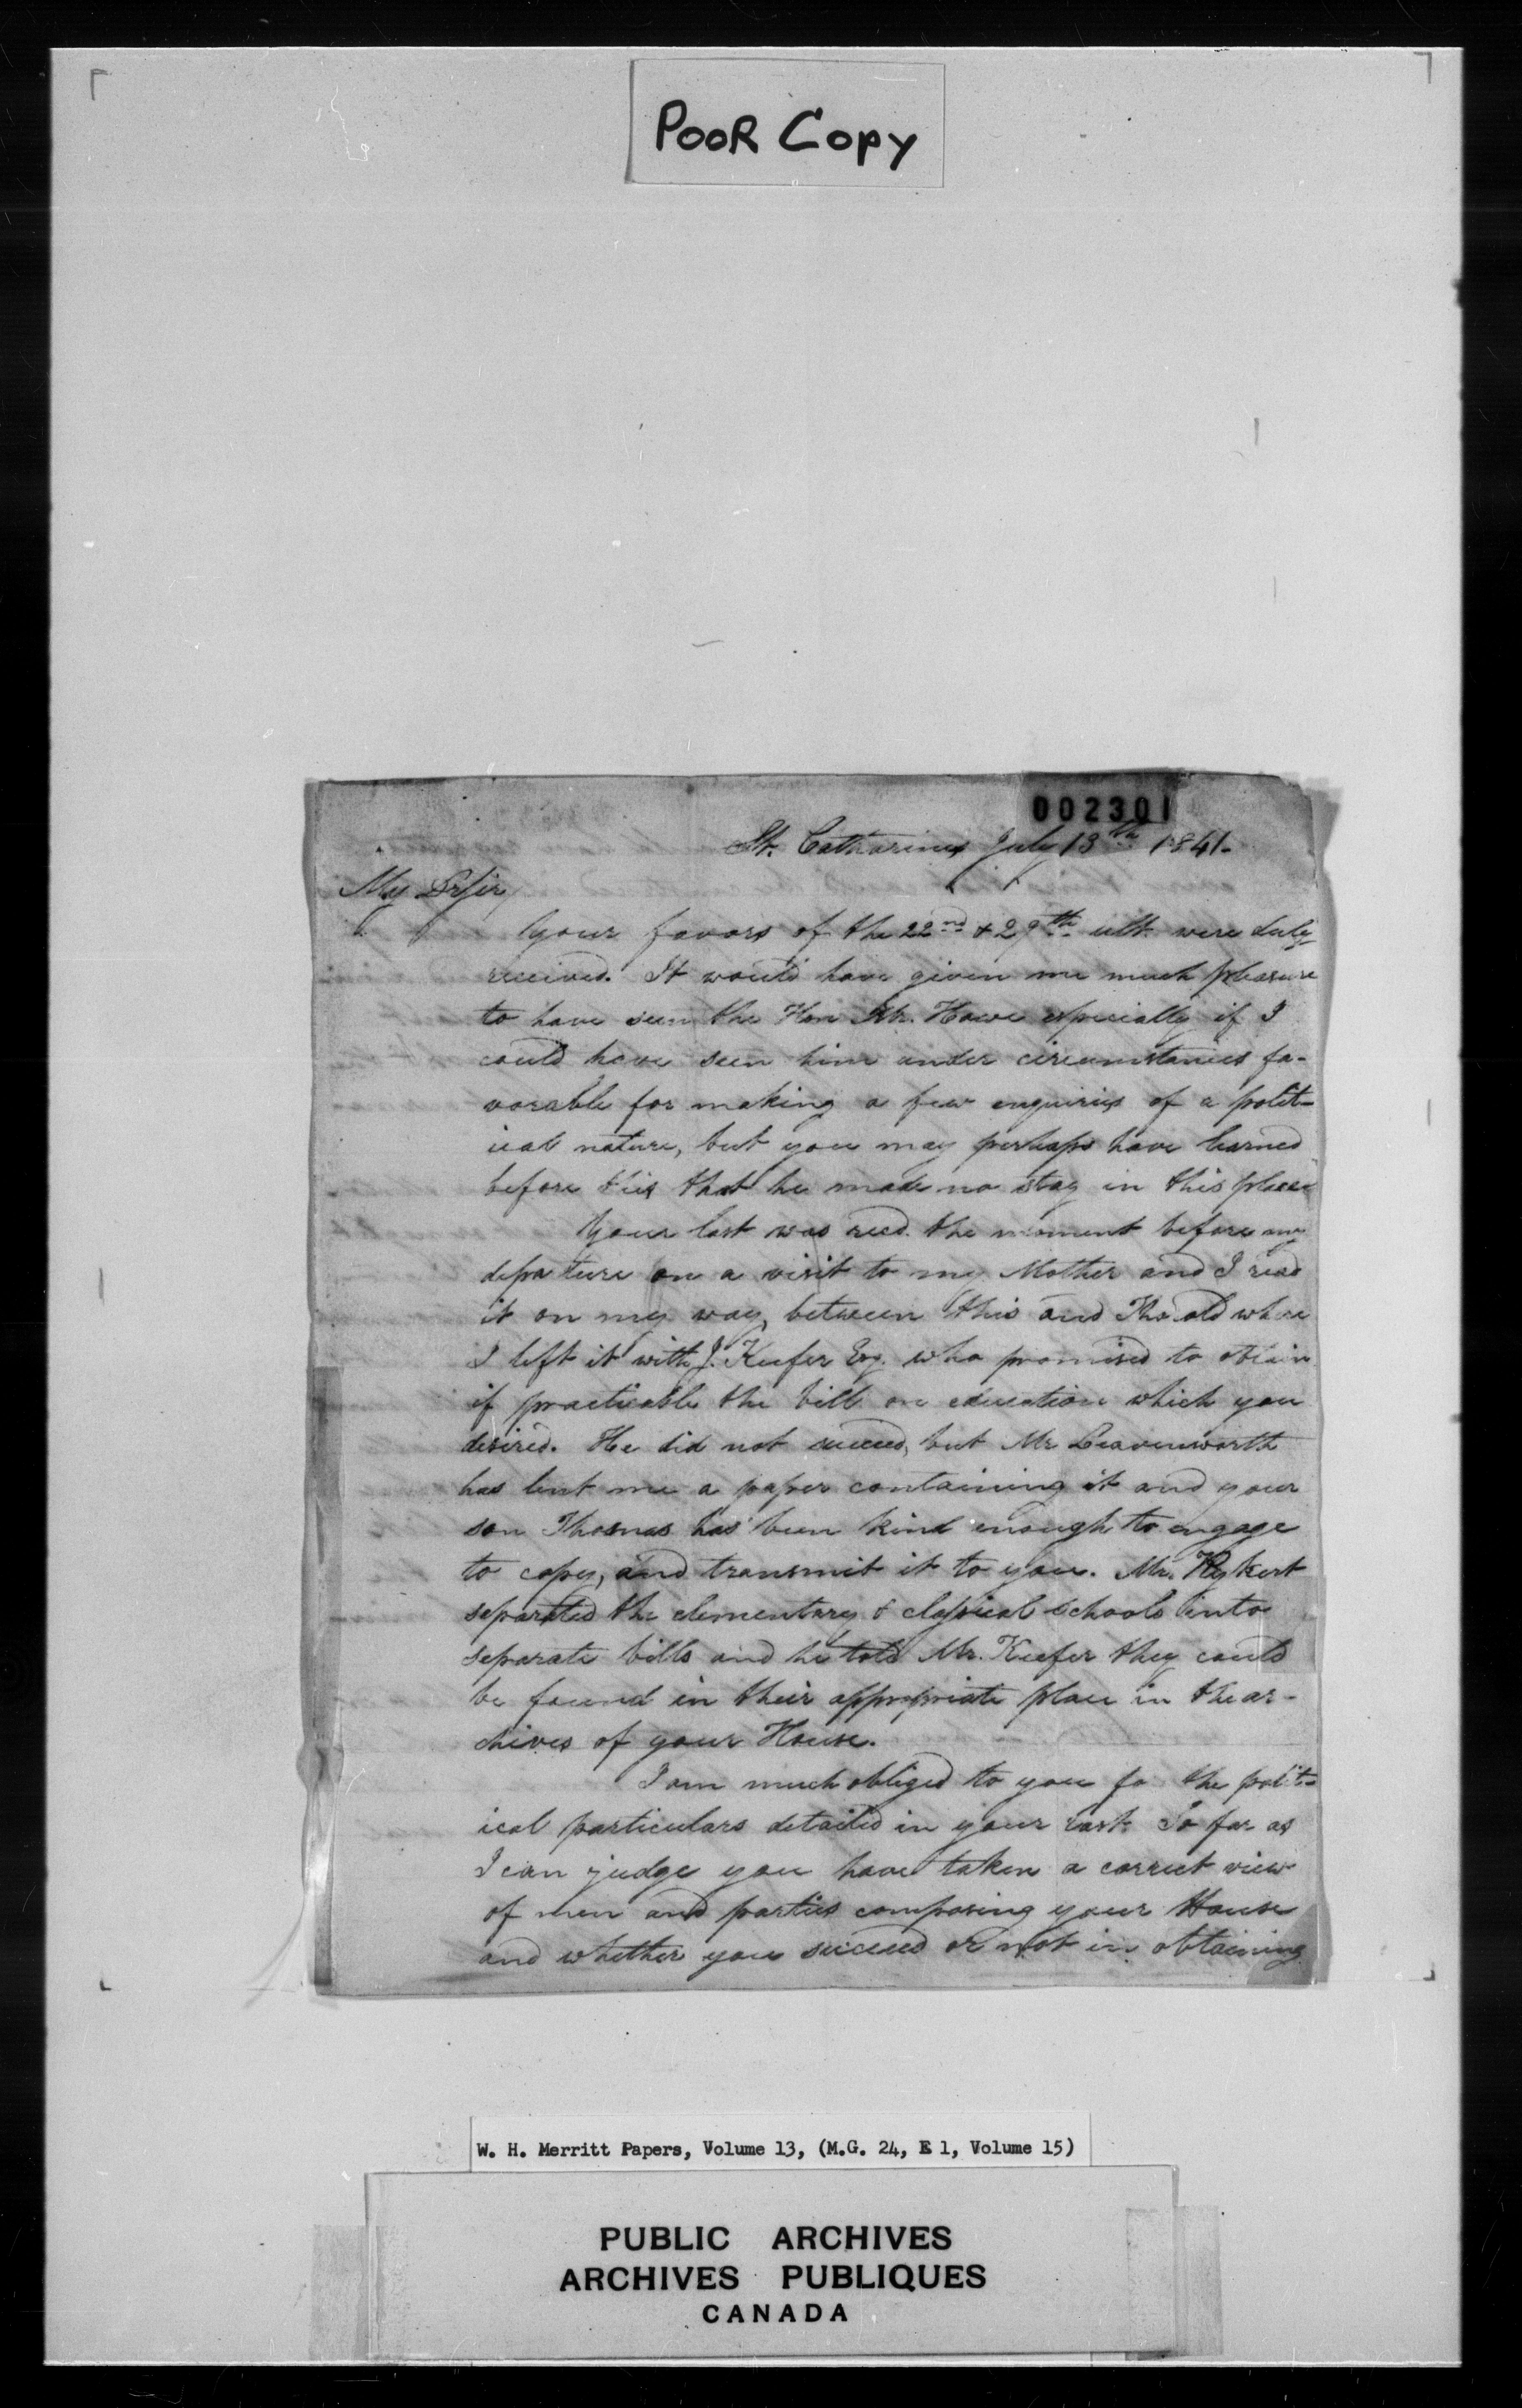 POOR COPY
002301
St. Catharines July 13th 1841.
My Dr Sir,
Your favors of the 22nd & 29th ult. were duly
received. It would have given me much pleasure
to have seen the Hon Mr. Howe especially if I
could have seen him under circumstances fa-
vorable for making a few enquiries of a polit-
ical nature, but you may perhaps have learned
before this that he made no stay in this place
Your last was recd. the moment before my
departure on a visit to my Mother and I read
it on my way, between this and Thorold where
I left it with J. Keefer Esq. who promised to obtain
if practicable the bill on education which you
desired. He did not succeed, but Mr Leavenworth
has lent me a paper containing it and your
son Thomas has been kind enough to engage
to copy, and transmit it to you. Mr. Rykert
separated the elementary & classical schools into
separate bills and he told Mr. Keefer they could
be found in their appropriate place in the ar-
chives of your House.
I am much obliged to you for the polit-
ical particulars detailed in your last. So far as
I can judge you have taken a correct view
of men and parties composing your House
and whether you succeed or not in obtaining
W. H. Merritt Papers, Volume 13, (M.G. 24, E 1, Volume 15)
PUBLIC ARCHIVES
ARCHIVES PUBLIQUES
CANADA